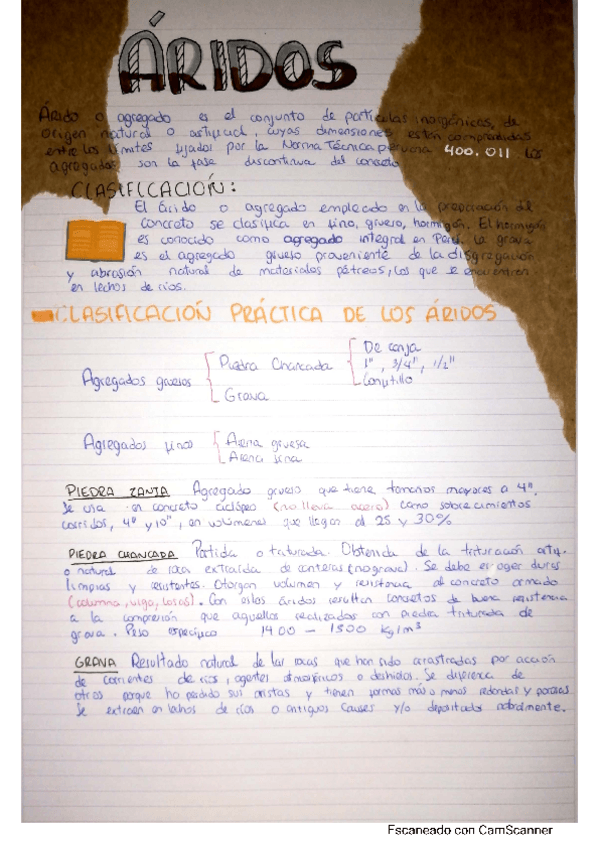 ÁRIDOS
Árido o agregado es el conjunto de partículas inorgánicas, de
origen natural o artificial, cuyas dimensiones están comprendidas
entre los límites fijados por la Norma Técnica peruana 400.011. Los
agregados son la fase discontinua del concreto
CLASIFICACIÓN:
El árido o agregado empleado en la preparación del
concreto se clasifica en fino, grueso, hormigón. El hormigón
es conocido como agregado integral en Perú. La grava
es el agregado grueso proveniente de la disgregación
y abrasión natural de materiales pétreos, los que se encuentren
en lechos de ríos.
CLASIFICACIÓN PRÁCTICA DE LOS ÁRIDOS
Agregados gruesos
Piedra Chancada
De zanja
1", 3/4", 1/2"
Confitillo
Grava
Agregados finos
Arena gruesa
Arena fina
PIEDRA ZANJA Agregado grueso que tiene tamaños mayores a 4".
Se usa en concreto ciclópeo (no lleva acero) como sobrecimientos
corridos, 4" y 10", en volumenes que llegan al 25 y 30%
PIEDRA CHANCADA Partida o triturada. Obtenida de la trituración arti.
o natural de roca extraída de canteras (no grava). Se debe escoger duras
limpias y resistentes. Otorgan volumen y resistencia al concreto armado
(columna, viga, losas). Con estos áridos resultan concretos de buena resistencia
a la compresión que aquellos realizados con piedra triturada de
grava. Peso específico 1400 - 1500 Kg/m³
GRAVA Resultado natural de las rocas que han sido arrastradas por acción
de corrientes de ríos, agentes atmosféricos o deshielos. Se diferencia de
otros porque ha perdido sus aristas y tienen formas más o menos redondas y porosas.
Se extraen en lechos de ríos o antiguos causes y/o depositados naturalmente.
Escaneado con CamScanner